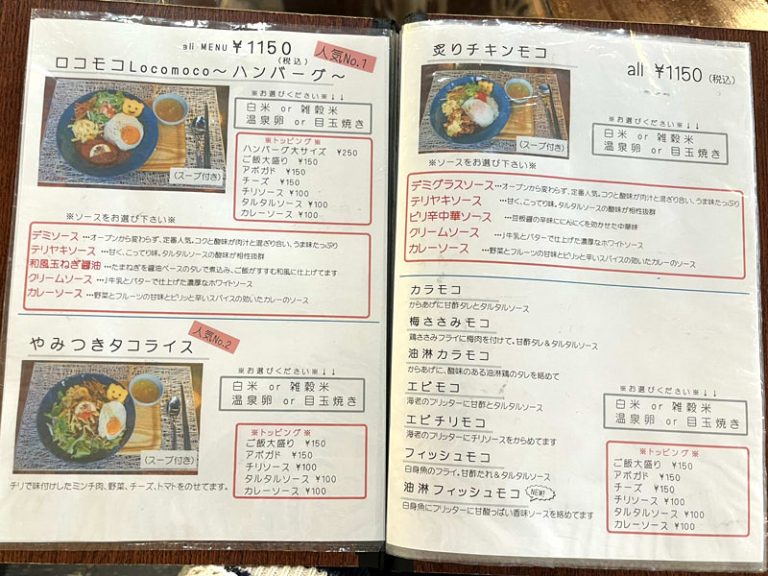 all MENU ¥1150
(税込)
人気No.1
ロコモコLocomoco～ハンバーグ～
※お選びください※↓↓
白米 or 雑穀米
温泉卵 or 目玉焼き
※トッピング※
ハンバーグ大サイズ ¥250
ご飯大盛り ¥150
アボガド ¥150
チーズ ¥150
チリソース ¥100
タルタルソース ¥100
カレーソース ¥100
(スープ付き)
※ソースをお選び下さい※
デミソース…オープンから変わらず、定番人気。コクと酸味が肉汁と混ざり合い、うま味たっぷり
テリヤキソース…甘く、こってり味。タルタルソースの酸味が相性抜群
和風玉ねぎ醤油…たまねぎを醤油ベースのタレで煮込み、ご飯がすすむ和風に仕上げてます
クリームソース…牛乳とバターで仕上げた濃厚なホワイトソース
カレーソース…野菜とフルーツの甘味とピリッと辛いスパイスの効いたカレーのソース
人気No.2
やみつきタコライス
※お選びください※↓↓
白米 or 雑穀米
温泉卵 or 目玉焼き
※トッピング※
ご飯大盛り ¥150
アボガド ¥150
チリソース ¥100
タルタルソース ¥100
カレーソース ¥100
(スープ付き)
チリで味付けしたミンチ肉、野菜、チーズ、トマトをのせてます。
炙りチキンモコ
all ¥1150(税込)
※お選びください※↓↓
白米 or 雑穀米
温泉卵 or 目玉焼き
(スープ付き)
※ソースをお選び下さい※
デミグラスソース…オープンから変わらず、定番人気。コクと酸味が肉汁と混ざり合い、うま味たっぷり
テリヤキソース…甘く、こってり味。タルタルソースの酸味が相性抜群
ピリ辛中華ソース…豆板醤の辛味ににんにくを効かせた中華味
クリームソース…牛乳とバターで仕上げた濃厚なホワイトソース
カレーソース…野菜とフルーツの甘味とピリッと辛いスパイスの効いたカレーのソース
カラモコ
からあげに甘酢タレとタルタルソース
梅ささみモコ
鶏ささみフライに梅肉を付けて。甘酢タレ＆タルタルソース
油淋カラモコ
からあげに、酸味のある油淋鶏のタレを絡めて
エビモコ
海老のフリッターに甘酢とタルタルソース
エビチリモコ
海老のフリッターにチリソースをからめてます
フィッシュモコ
白身魚のフライ。甘酢たれ＆タルタルソース
油淋フィッシュモコ NEW!
白身魚にフリッターに甘酸っぱい香味ソースを絡めてます
※お選びください※↓↓
白米 or 雑穀米
温泉卵 or 目玉焼き
※トッピング※
ご飯大盛り ¥150
アボガド ¥150
チーズ ¥150
チリソース ¥100
タルタルソース ¥100
カレーソース ¥100